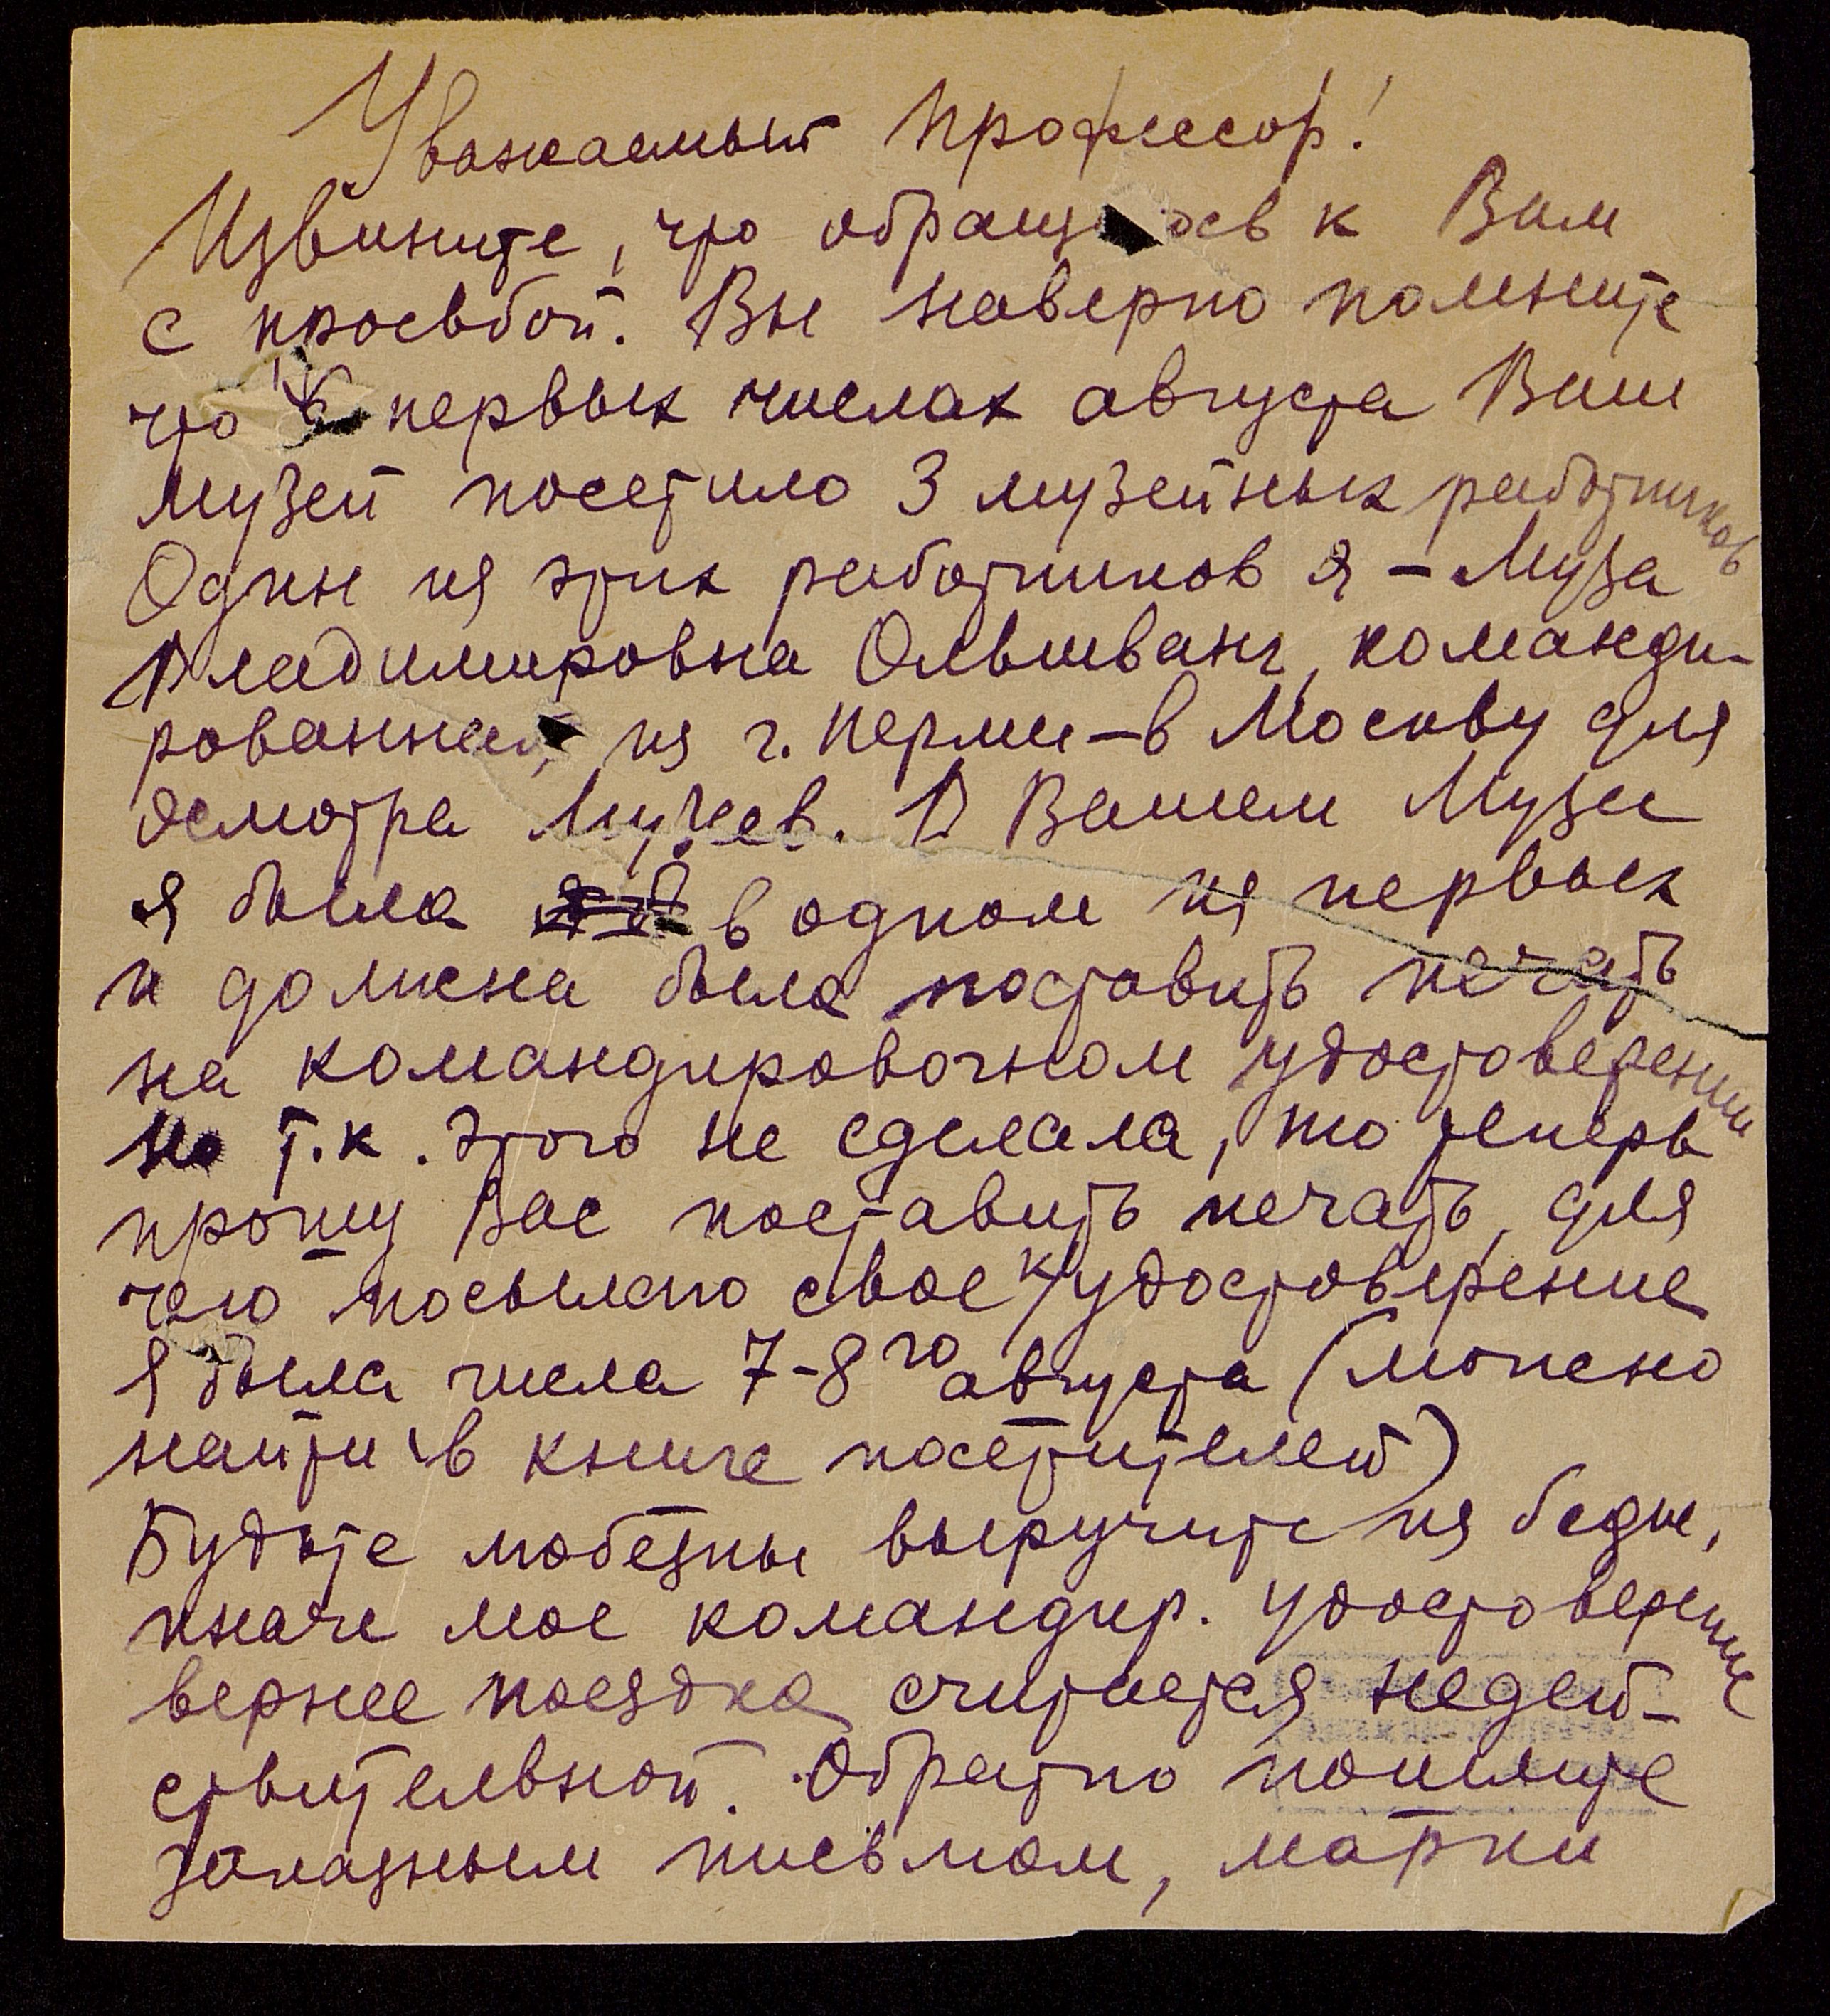 Уважаемый профессор!
Извините, что обращаюсь к Вам
с просьбой. Вы наверно помните
что в первых числах августа Ваш
музей посетило 3 музейных работников
Один из этих работников я – Муза
Владимировна Ольшванг, команди-
рованная, из г. Перми – в Москву для
осмотра Музеев. В Вашем Музее
я была в одном из первых
и должна была поставить печать
на командировочном удостоверении
но т.к. этого не сделала, то теперь
прошу Вас поставить печать, для
чего посылаю свое к/удостоверение
Я была числа 7-8го августа (можно
найти в книге посетителей)
Будьте любезны выручите из беды,
иначе мое командир. удостоверение
вернее поездка считается недей-
ствительной. Обратно пошлите
заказным письмом, марки